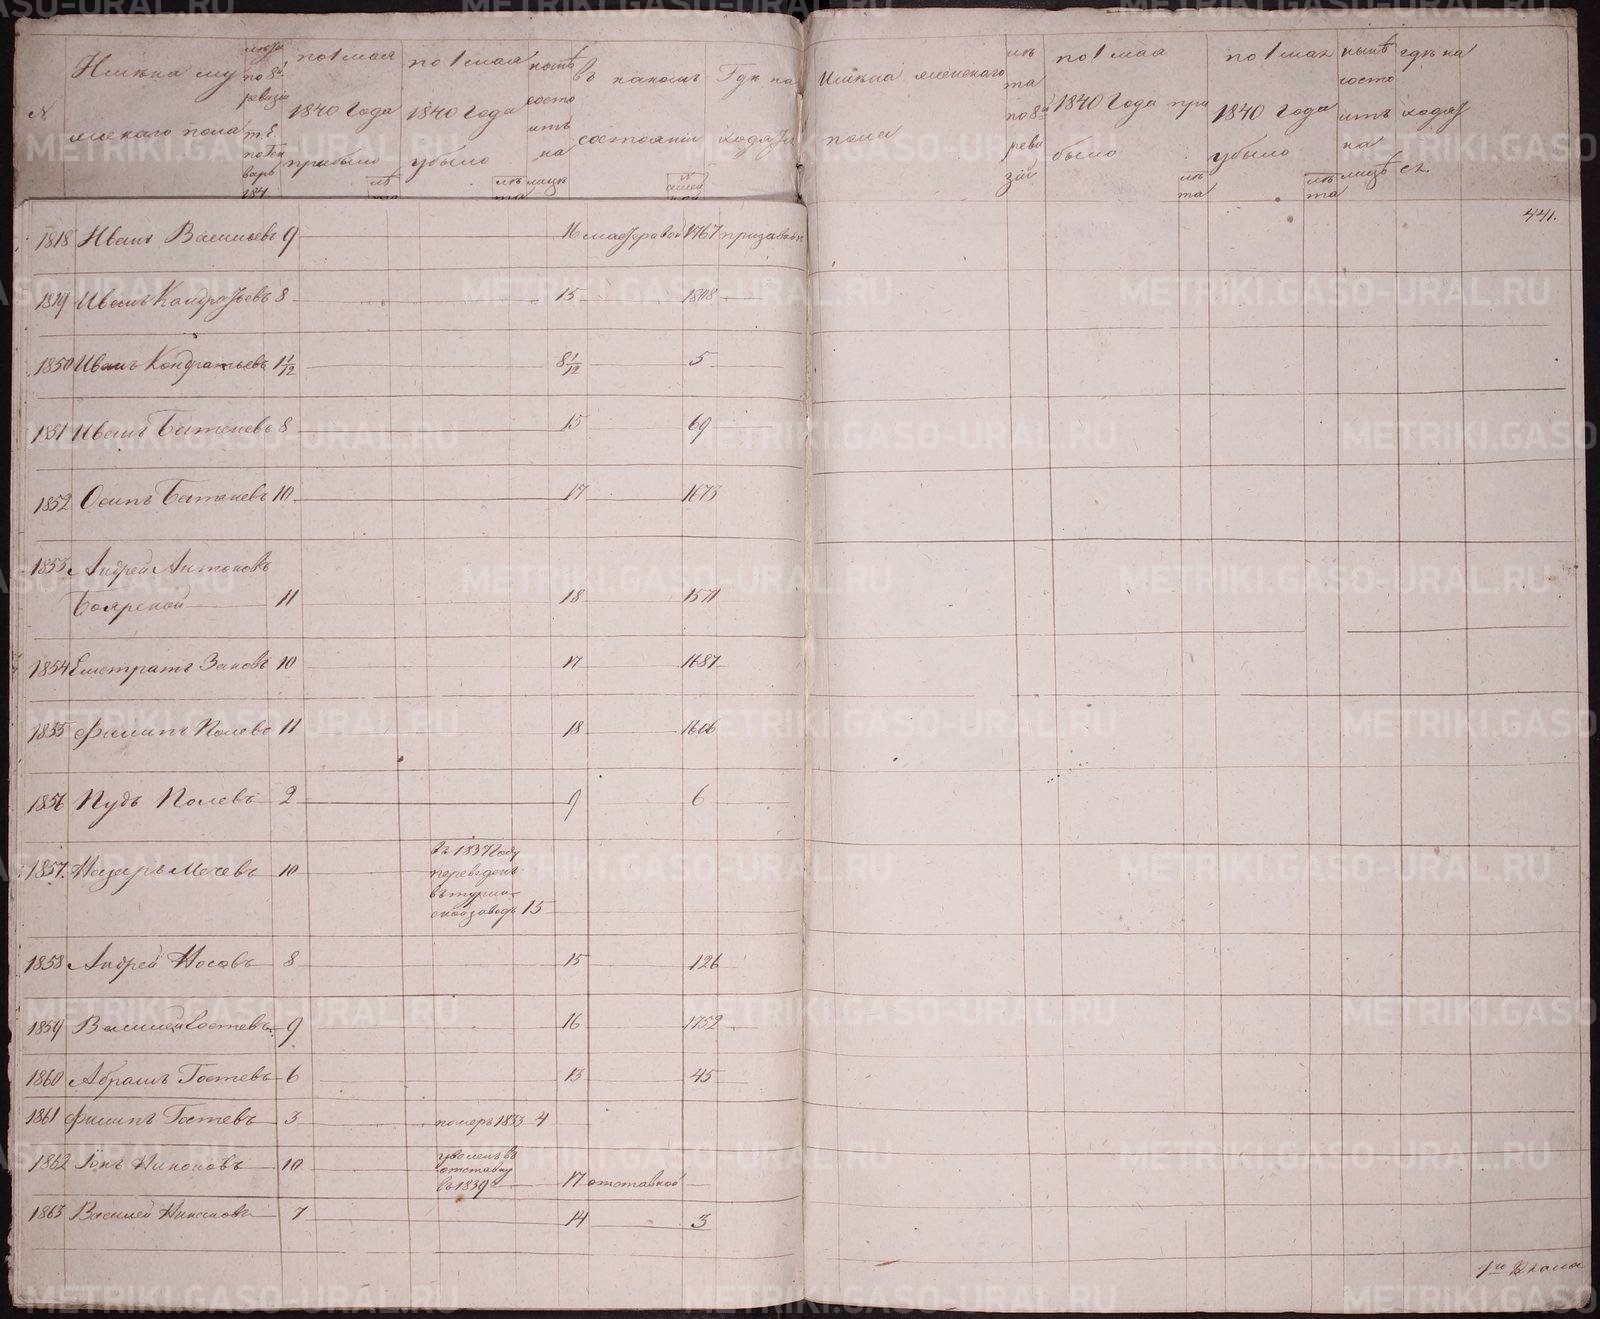 №
Имяна му
жскаго пола
по 8й
ревизіи
по 1 мая
1840 Года
прибыло
лѣ
та
по 1 мая
1840 Года
убыло
лѣ
та
нынѣ
состо
итъ
на
лицѣ
Въ какомъ
состояніи
Гдѣ на
ходятся
Имяна женскаго
пола
лѣ
та
по 8й
реви
зіи
по 1 мая
1840 Года при
было
лѣ
та
по 1 мая
1840 Года
убыло
лѣ
та
нынѣ
состо
итъ
на
лицѣ
гдѣ на
ходят
ся.
441.
Иванъ Васильевъ 9 16 мастеровой 1767
Иванъ Кондратьевъ 8 15 1808
1850 Иванъ Кондратьевъ 1 1/12 8 1/12 5
1851 Иванъ Батеневъ 8 15 69
1852 Осипъ Батеневъ 10 17 1673
1853 Андрей Антоновъ
Боярской 11 18 1571
1854 Евстратъ Заковъ 10 17 1687
1855 Филипъ Полево 11 18
1856 Пудъ Полевъ 2 9 6
1857. Назаръ Мечевъ 10
въ 1837 Году
переведенъ
въ турин-
ской заводъ 15
1858 Андрей Носовъ 8 15 126
1859 Василей Гостевъ 9 16 1752
1860 Абрамъ Гостевъ 6 13 45
1861 Филипъ Гостевъ 3 померъ 1833 4
1862 Іонъ Никоновъ 10
уволенъ въ
отставку
въ 1839 17 отставной
1863 Василей Никоновъ 7 14 3